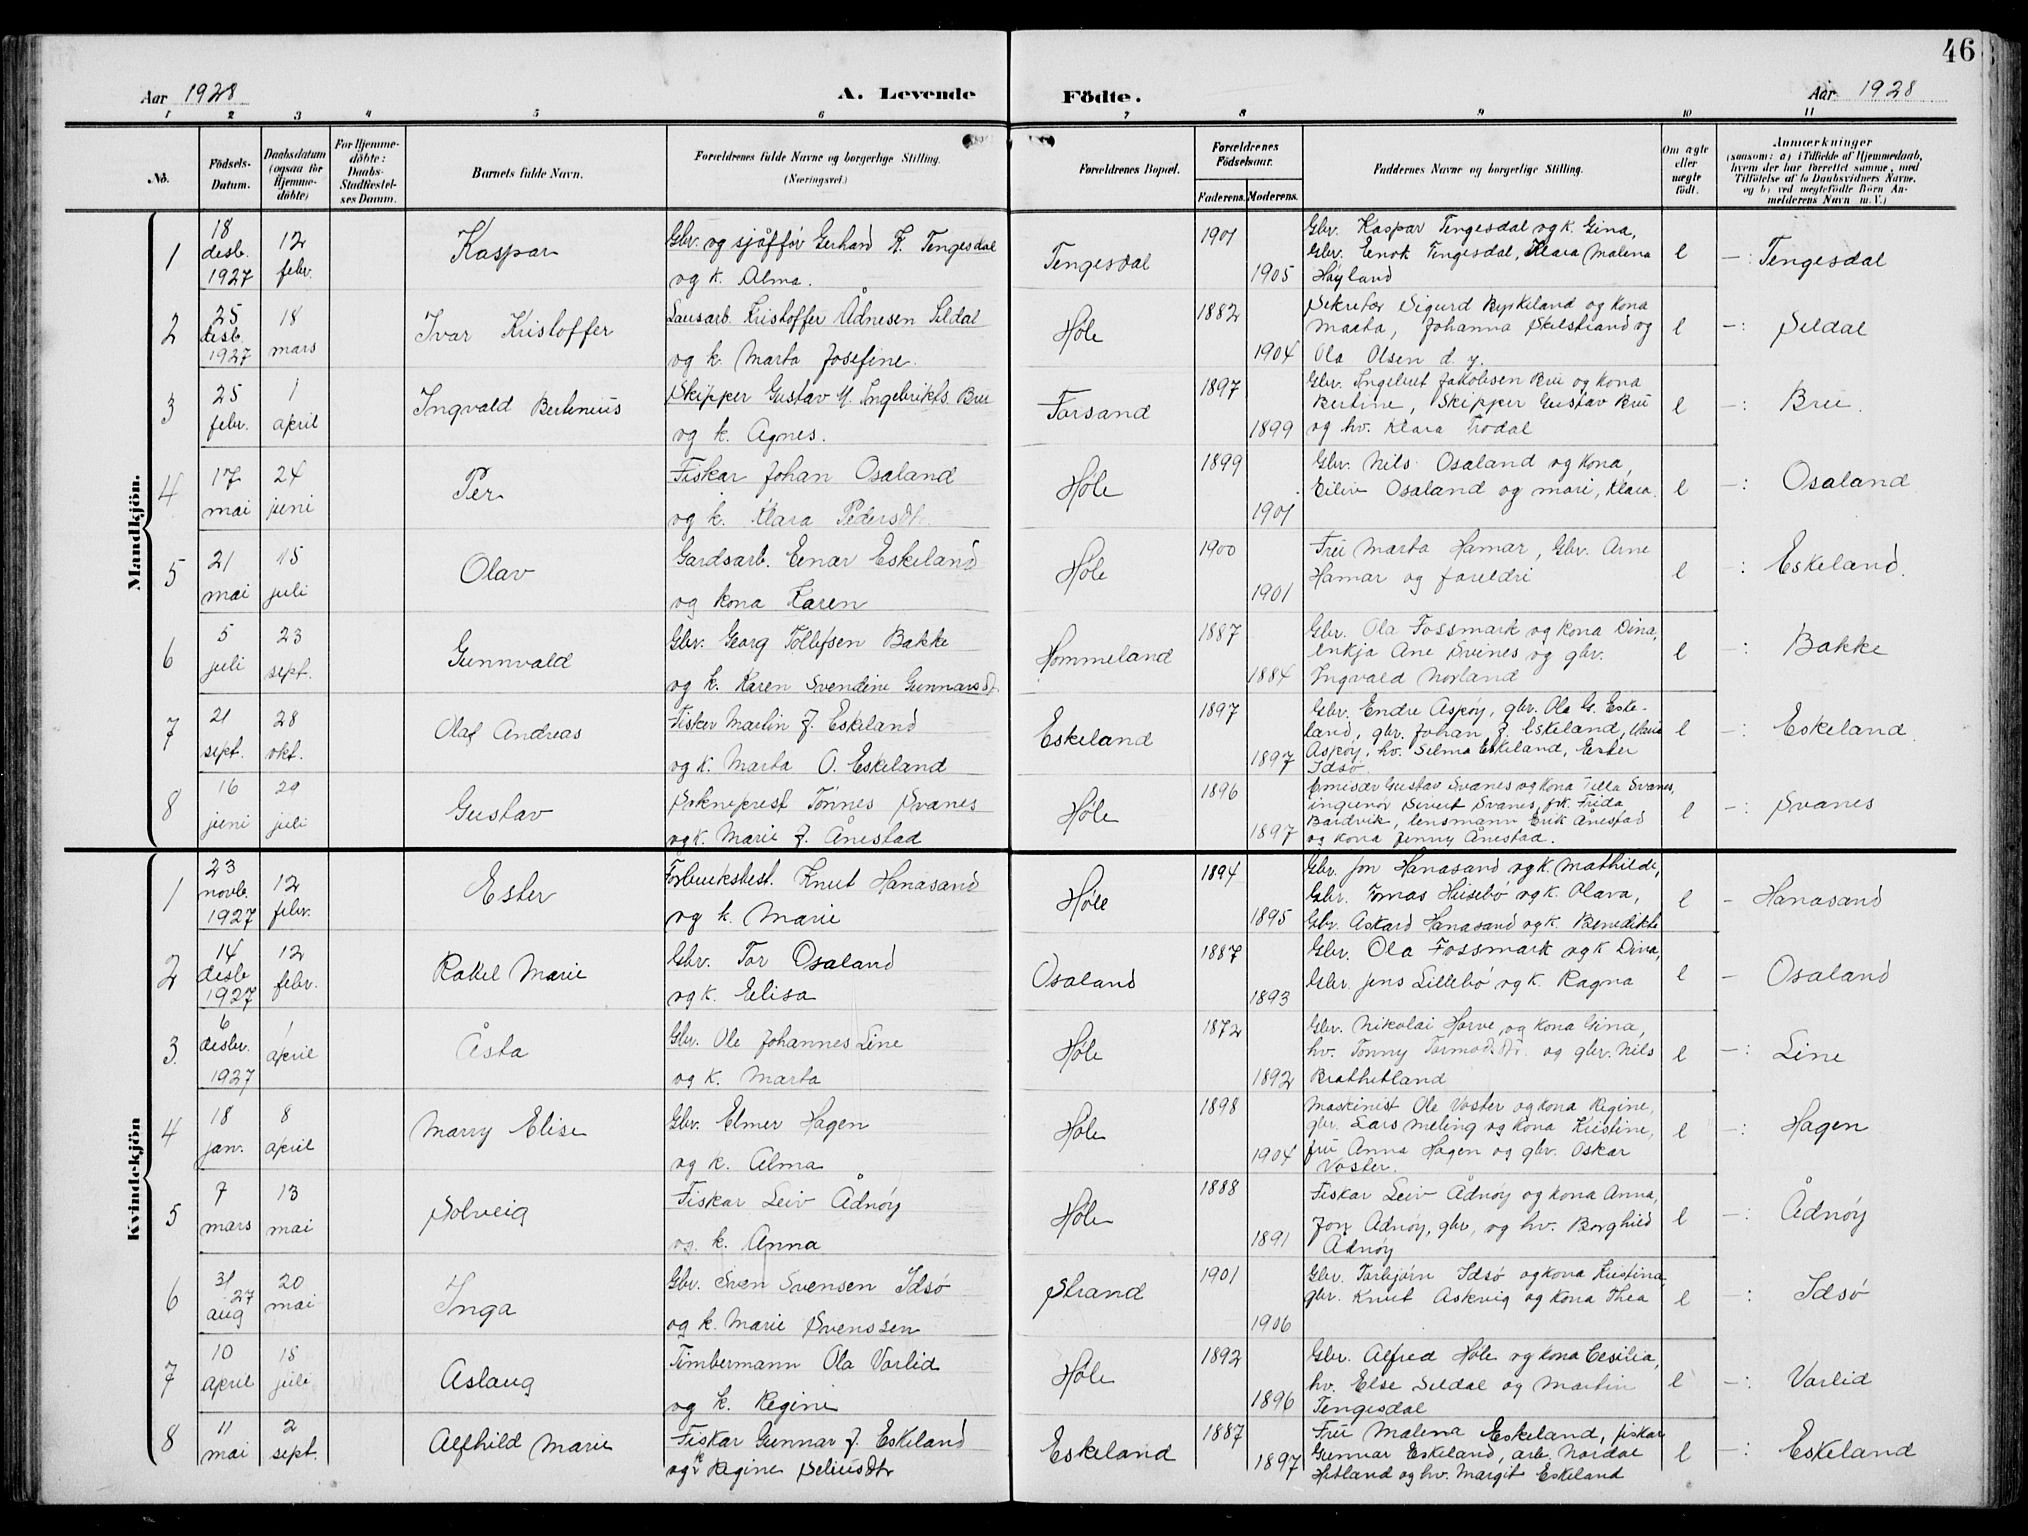 46
Aar 1928
A. Levende
Födte.
Aar 1928
1 2 3 4 5 6 7 8 9 10 11
No.
Födsels-
Datum.
Daabsdatum
(ogsaa for
Hjemme-
döbte)
For Hjemme-
döbte:
Daabs-
Stadfæstel-
ses Datum.
Barnets fulde Navn.
Forældrenes fulde Navne og borgerlige Stilling.
(Næringsvei.)
Forældrenes Bopæl.
Forældrenes
Födselsaar.
Faderens. Moderens.
Faddernes Navne og borgerlige Stilling.
Om ægte
eller
uægte
födt.
Anmærkninger
(saasom: a) i Tilfælde af Hjemmedaab,
hvem der har forrettet samme, med
Tilföielse af to Daabsvidners Navne,
og b) ved uægtefödte Börn An-
melderens Navn m. V.)
Mandkjön.
1
18
desb.
1927
12
febr.
Kaspar
Gbr. og sjåfför Gerhard K. Tengesdal
og k. Alma.
Tengesdal
1901
1905
Gbr. Kaspar Tengesdal og k. Gina,
Gbr. Enok Tengesdal, Klara Malena
Høyland
l
—: Tengesdal
2
25
desb.
1927
18
mars
Ivar Kristoffer
Lausarb. Kristoffer Ådnesen Seldal
og k. Marta Josefine.
Høle
1882
1904
Sekretær Sigurd Byskeland og kona
Marta, Johanna Skelstrand og
Ola Olsen d. y.
l
—: Seldal
3
25
febr.
1
april
Ingvald Bertinius
Skipper Gustav M. Ingebrikts. Bru
og k. Agnes.
Forsand
1897
1899
Gbr. Ingebret Jakobsen Bru og kona
Bertine, Skipper Gustav Bru
og hv. Klara Frodal
l
—: Bru.
4
17
mai
24
juni
Per
Fiskar Johan Osaland
og k. Klara Pedersdt.
Høle
1899
1901
Gbr. Nils Osaland og kona,
Eiliv Osaland og mari, Klara.
l
—: Osaland
5
21
mai
15
juli
Olav
Gardsarb. Einar Eskeland
og kona Karen
Høle
1900
1901
Fru Marta Hamar, Gbr. Arne
Hamar og foreldri
l
—: Eskeland.
6
5
juli
23
sept.
Gunnvald
Gbr. Georg Tollefsen Bakke
og k. Karen Svendine Gunnarsdt.
Hommeland
1887
1884
Gbr. Ola Fossmark og kona Dina,
enkja Ane Svines og gbr.
Ingvald Norland
l
—: Bakke
7
21
sept.
28
okt.
Olaf Andreas
Fisker Martin J. Eskeland
og k. Marta O. Eskeland
Eskeland
1897
1897
Gbr. Endre Aspøy, gbr. Ola G. Eske-
land, gbr. Johan J. Eskeland, Marie
Aspøy, hv. Selma Eskeland, Ester
Idsø.
l
—: Eskeland.
8
16
juni
29
juli
Gustav
Sokneprest Tönnes Svanes
og k. Marie J. Ånestad
Høle
1896
1897
Emissær Gustav Svanes og kona Tilla Svanes,
ingeniör Sivert Svanes, frk. Frida
Bardvik, lensmann Erik Ånestad
og kona Jenny Ånestad.
l
—: Svanes
Kvindekjön
1
23
novb.
1927
12
febr.
Ester
Forbruksbest. Knut Hanasand
og k. Marie
Høle
1894
1895
Gbr. Jon Hanasand og k. Mathilde,
Gbr. Tomas Husebø og k. Olava,
Gbr. Askard Hanasand og k. Benedikte
l
— Hanasand
2
14
desb.
1927
12
febr.
Rakel Marie
Gbr. Tor Osaland
og k. Elisa
Osaland
1887
1893
Gbr. Ola Fossmark og k. Dina,
Gbr. Jens Lillebø og k. Ragna
l
— Osaland
3
6
desbr.
1927
1
april
Åsta
Gbr. Ole Johannes Line
og k. Marta
Høle
1872
1892
Gbr. Nikolai Horve, og kona Gina,
hv. Tonny Tormodsdt. og gbr. Nils
Brathetland
l
—: Line
4
18
jan.
8
april
Marry Elise
Gbr. Elmer Hagen
og k. Alma
Høle
1898
1904
Maskinist Ole Voster og kona Regine,
gbr. Lars Meling og kona Kristine,
fru Anna Hagen og gbr. Oskar
Voster.
l
—: Hagen
5
7
mars
13
mai
Solveig
Fiskar Leiv Ådnøy
og k. Anna
Høle
1888
1891
Fiskar Leiv Ådnøy og kona Anna,
Jon Adnøy, gbr, og hv. Borghild
Ådnøy
l
—: Ådnøy
6
31
27
aug
20
mai
Inga
Gbr. Sven Svensen Idsø
og k. Marie Svenssen
Strand
1901
1906
Gbr. Torbjørn Idsø og kona Kristina
gbr. Knut Askvig og kona Thea
l
—: Idsø
7
10
april
15
juli
Aslaug
Timbermann Ola Varlid
og k. Regine
Høle
1892
1896
Gbr. Alfred Høle og kona Cesilia,
hv. Else Seldal og Martin
Tengesdal
l
—: Varlid
8
11
mai
2
sept.
Alfhild Marie
Fiskar Gunnar J. Eskeland
og k Regine Seliusdtr
Eskeland
1887
1897
Fru Malena Eskeland, fiskar
Gunnar Eskeland, arb. Nordal
Hetland og hv. Margit Eskeland
l
—: Eskeland